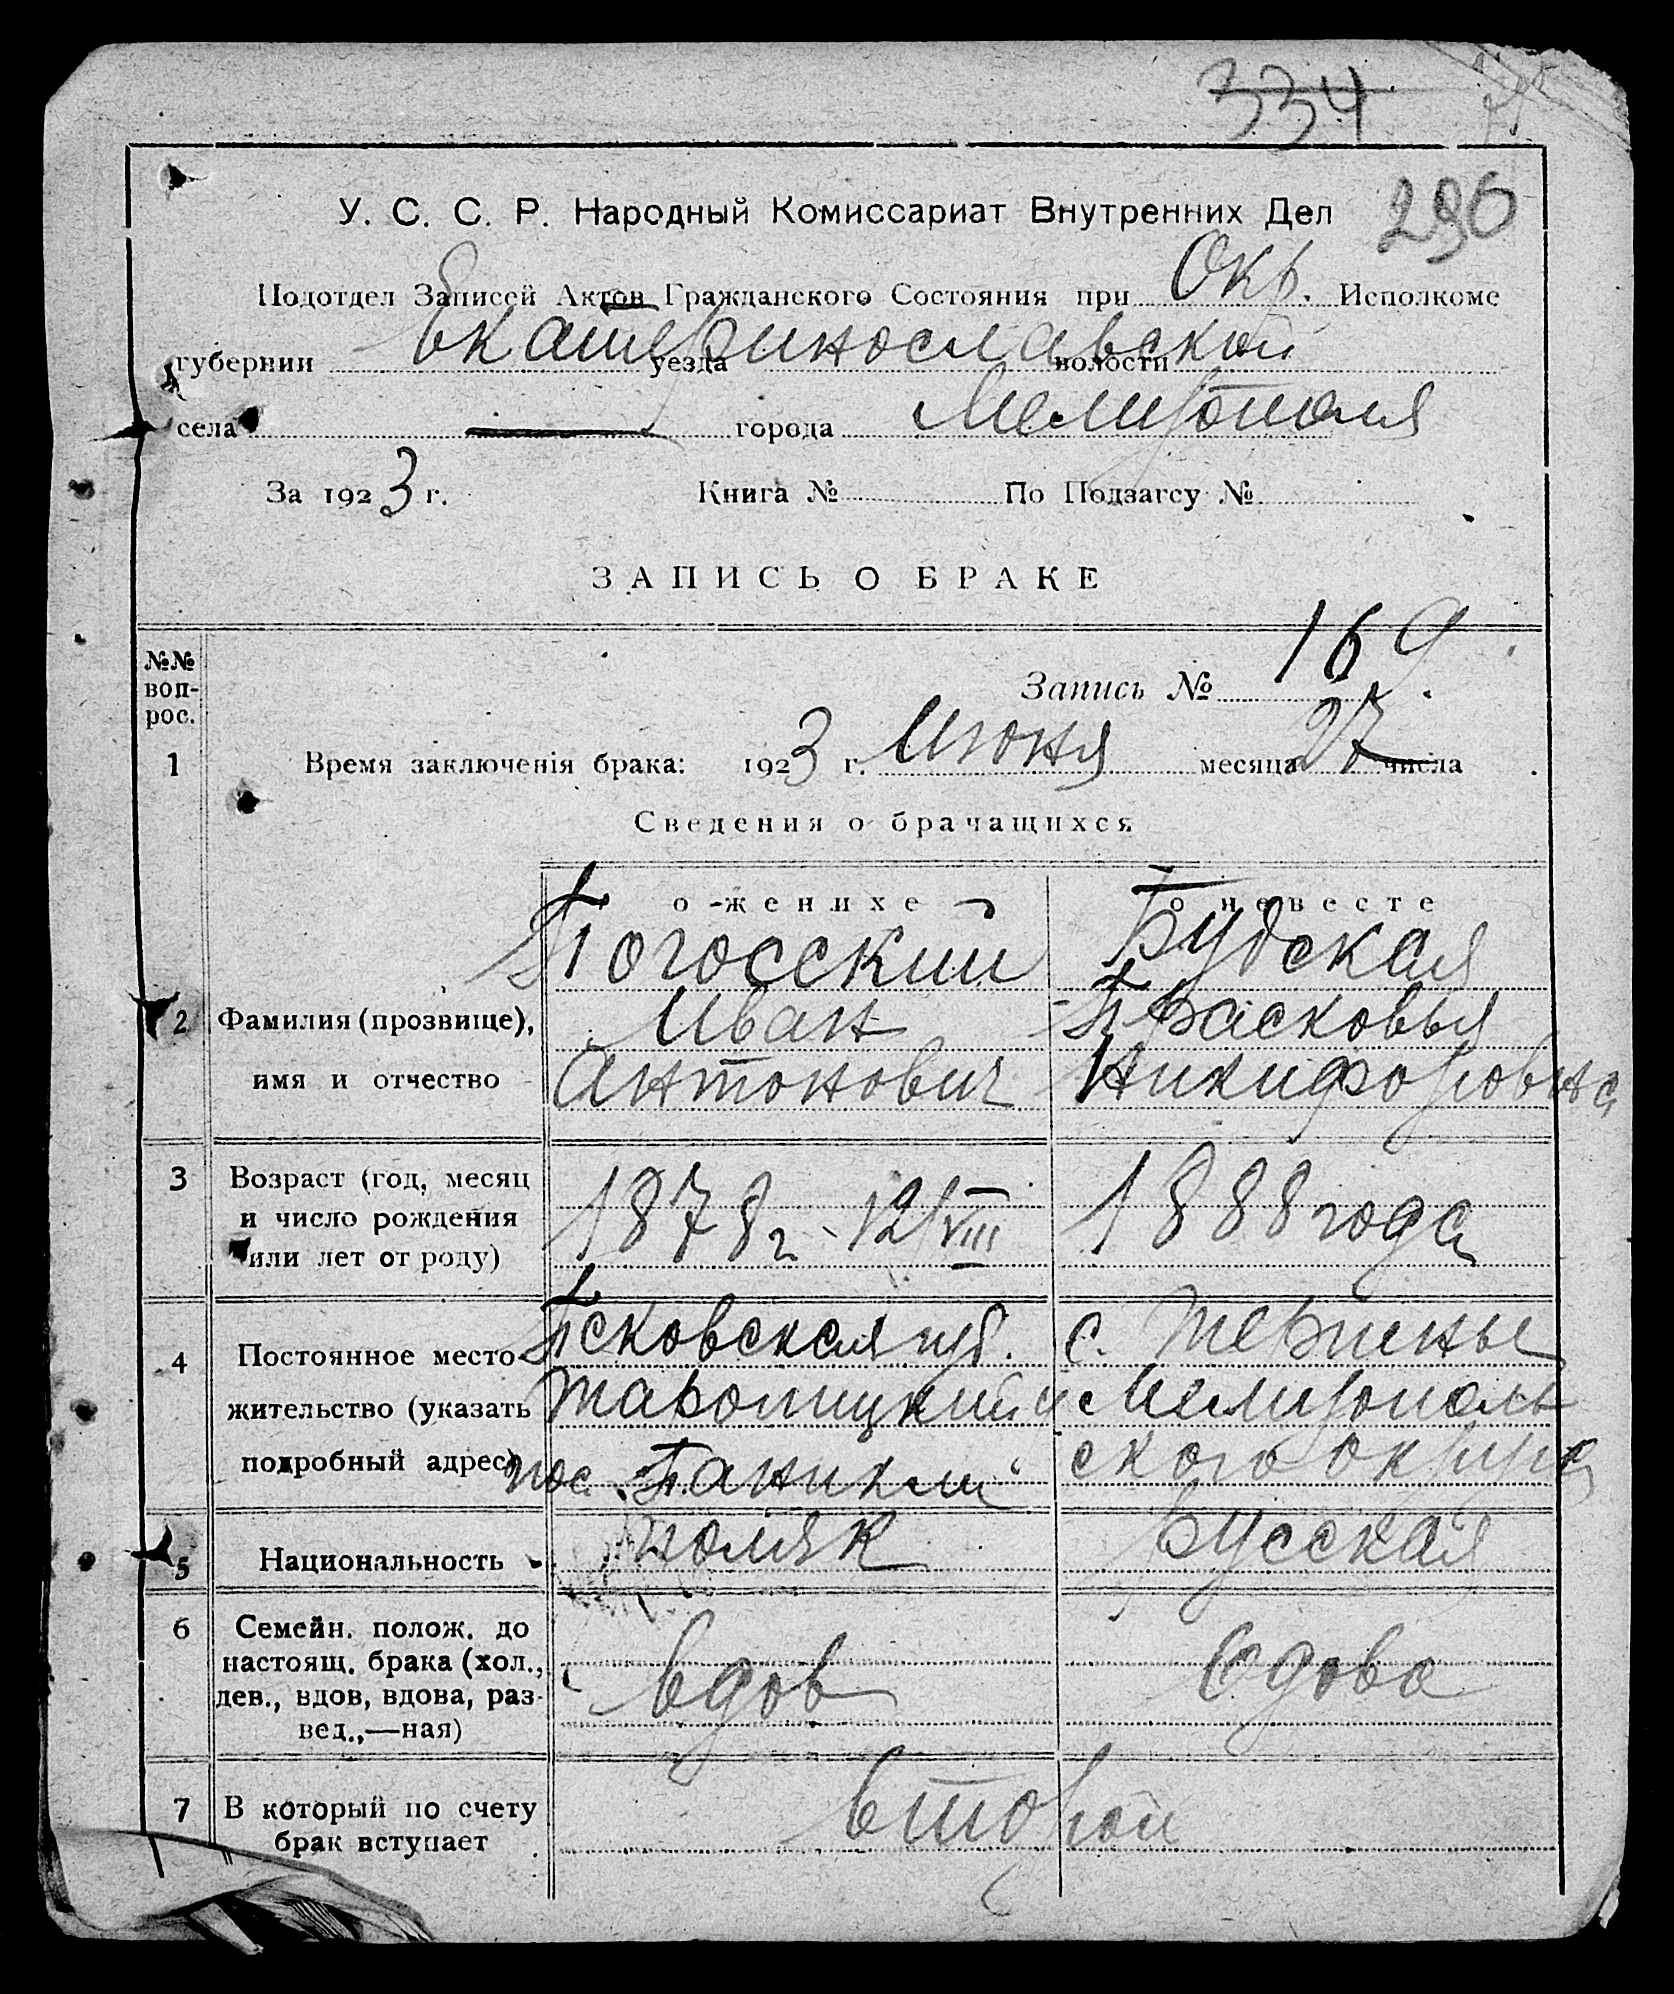 334
296
У. С. С. Р. Народный Комиссариат Внутренних Дел
Подотдел Записей Актов Гражданского Состояния при Окр. Исполкоме
губернии Екатеринославской уезда волости
села — города Мелитополя
За 1923 г. Книга № По Подзагсу №
ЗАПИСЬ О БРАКЕ
№№ воп-рос.
Запись № 169
1 Время заключенія брака: 1923 г. Июня месяца 27 числа
Сведения о брачащихся
о женихе о невесте
Погосский Будская
2 Фамилия (прозвище), Иван Прасковья
имя и отчество Антонович Никифоровна
3 Возраст (год, месяц
и число рождения 1878 г. 12/VIII 1888 года
или лет от роду)
4 Постоянное место Псковская губ. с. Терпенье
жительство (указать Таропицкий у Мелитополь
подробный адрес) пос. ского округа
5 Национальность поляк Русская
6 Семейн. полож. до
настоящ. брака (хол., вдов вдова
дев., вдов, вдова, раз-
вед.,—ная)
7 В который по счету второй
брак вступает